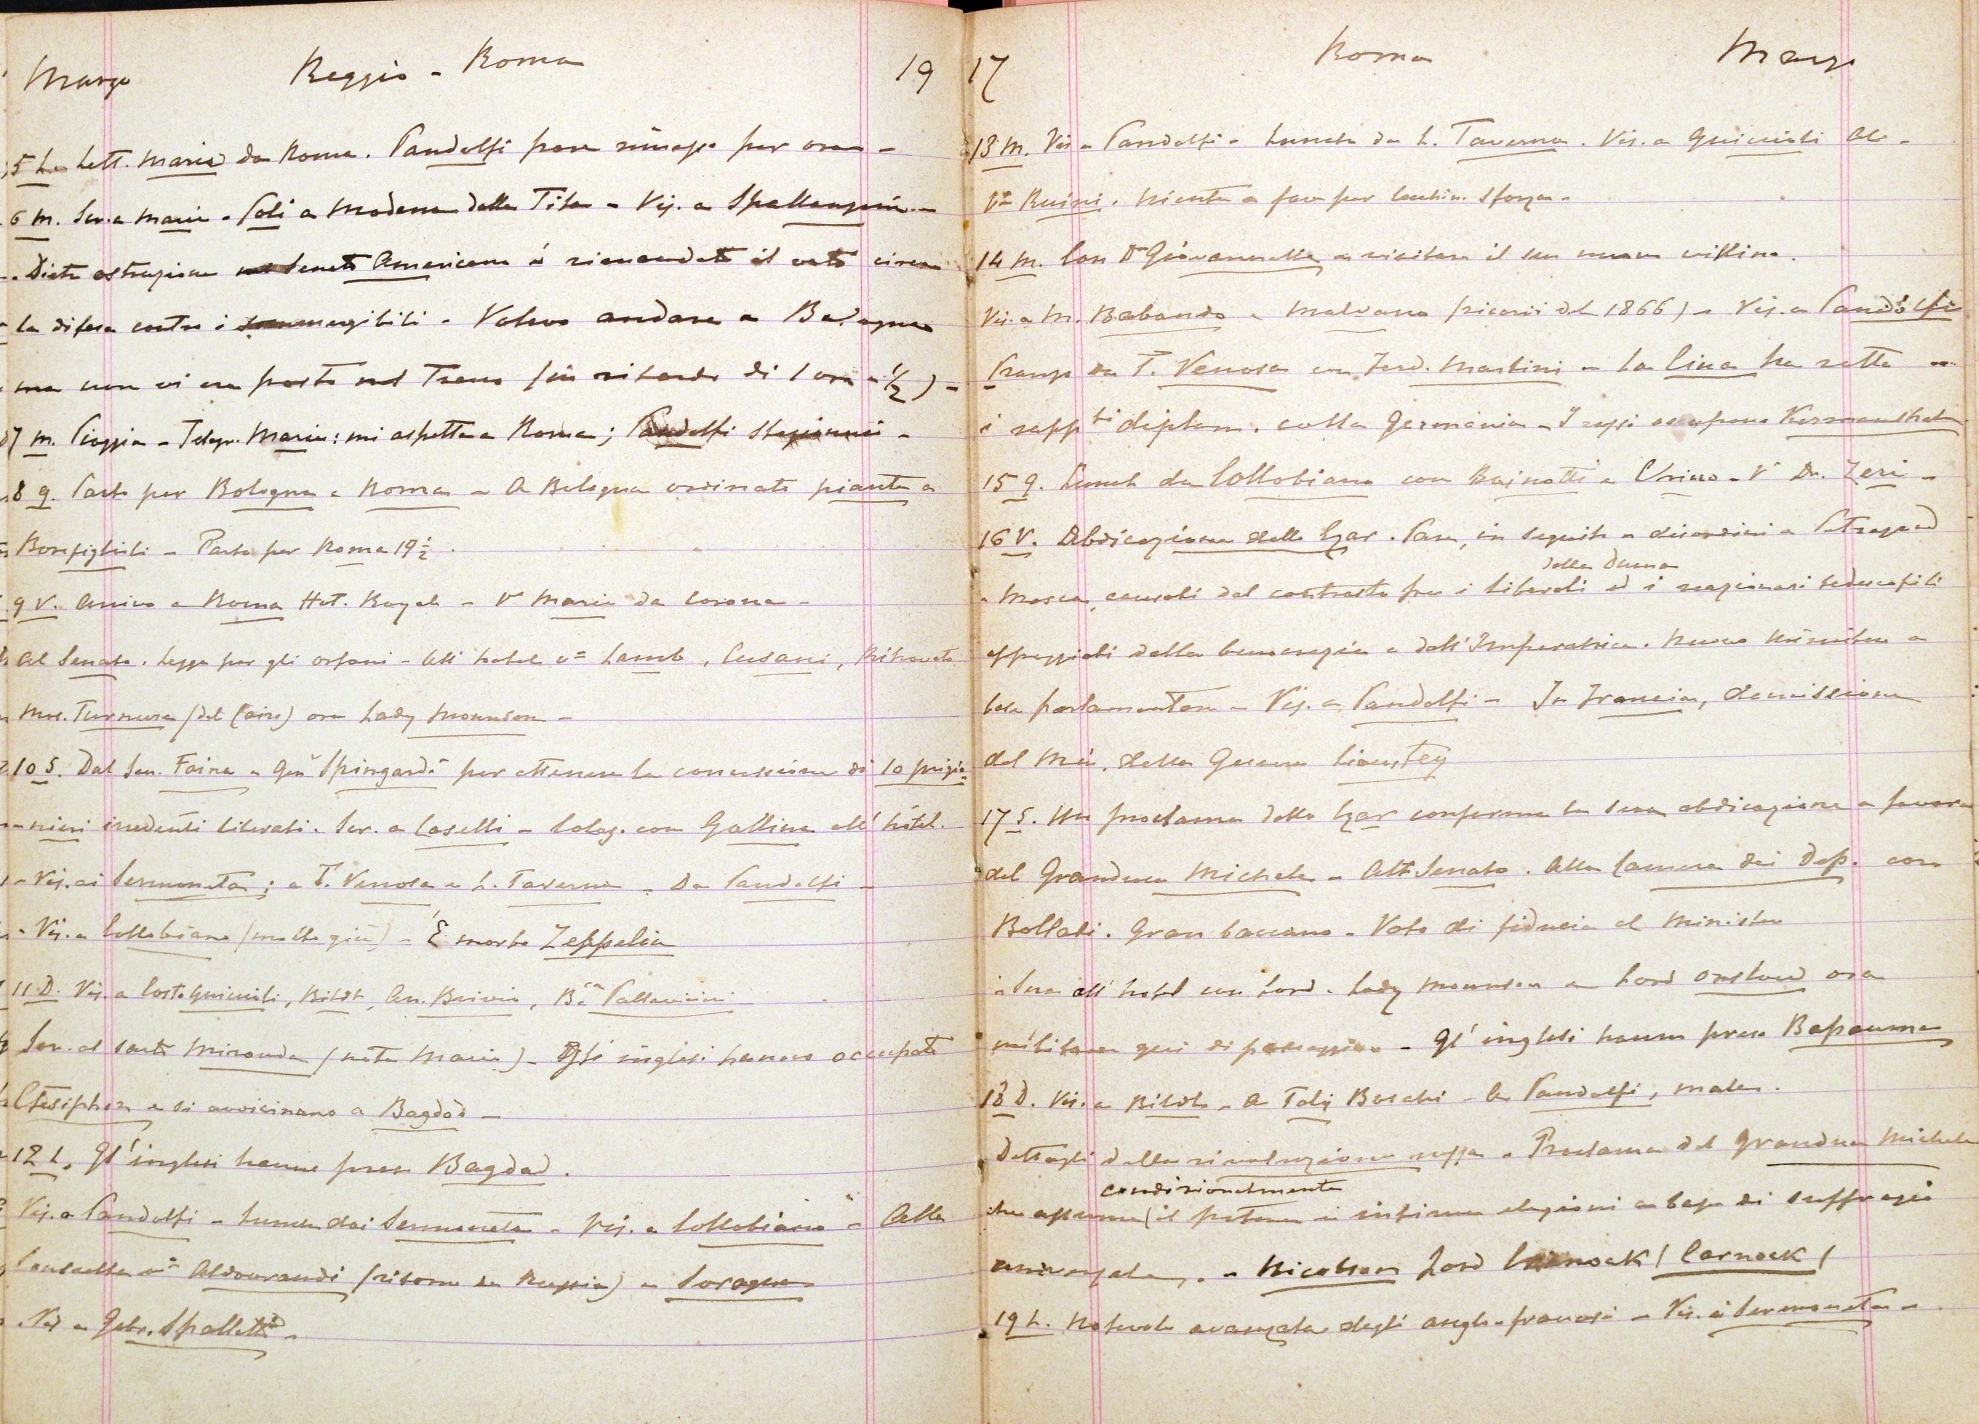 Marzo Reggio - Roma 19
5 L. Lett. Maria da Roma. Pandolfi pare per ora -
6 M. Scr. a Maria - Poli a Modena della Tisa - Vis. a Spallanzani -
- Dietro ostruzione nel Senato Americano è rimandato il voto circa
la difesa contro i sommergibili - Volevo andare a Bologna
ma non vi era posto nel Treno (in ritardo di 1 ora e 1/2) -
7 M. Pioggia - Telegr. Maria: mi aspetta a Roma; Pandolfi stazionario -
8 G. Parto per Bologna e Roma - A Bologna ordinato piante a
Bonfiglioli - Parto per Roma 19 1/2
9 V. Arrivo a Roma Hot. Royal - Va Maria da Corona -
Al Senato. Legge per gli orfani - All' hotel va Lamb, Cusani, Ritrovato
Mrs. Turnure (del Cairo) ora Lady Mounson -
10 S. Dal Sen. Faina e Gen. Spingardi per ottenere la concessione di 10 prigio-
-nieri irredenti liberati. Scr. a Caselli - Coloq. con Gallina all' hôtel.
- Vis. ai Sermoneta; a T. Venosa e L. Taverna - Da Pandolfi -
- Vis. a Collobiano (molto giù) - È morto Zeppelin
11 D. Vis. a Costa Guiccioli, Bildt, An. Brivio, B.sa Pallavicini
Scr. al Conte Miranda (nota Maria) - Gli inglesi hanno occupato
Ctesiphon e si avvicinano a Bagdad -
12 L. Gl' inglesi hanno preso Bagdad.
Vis. a Pandolfi - Lunch dai Sermoneta - Vis. a Collobiano - Alla
Consulta Aldovrandi (ritorno da Russia) e Soragna
- Vis. a Gabr. Spalletti -
17 Roma Marzo
13 M. Vis. a Pandolfi - Lunch da L. Taverna. Vis. a Guiccioli
Ruini. Niente a fare per Sforza -
14 M. Con Da Giovannella a visitare il suo nuovo villino.
Vis. a M. Rabando e Malvano (ricordi del 1866) - Vis. a Pandolfi
Pranzo da T. Venosa con Ferd. Martini - La Cina ha rotto
i rapp.ti diplom. colla Germania - I russi occupano Kermanshah
15 G. Lunch da Collobiano con Bajnotti e - V. Dr. Zeri -
16 V. Abdicazione dello Czar. Pare, in seguito a disordini a Petrograd
della Duma
e Mosca, causati dal contrasto fra i liberali ed i reazionari tedescofili
appoggiati dalla burocrazia e dall' Imperatrice. Nuovo ministero a
base parlamentare - Vis. a Pandolfi - In Francia, demissione
del Min. della Guerra Liautey
17 S. Un proclama dello Czar conferma la sua abdicazione a favore
del Granduca Michele - Al Senato. Alla Camera dei Dep. con
Bollati. Gran baccano - Voto di fiducia al Ministero
- Sera all' hotel con Lord e Lady Mounson e Lord Onslow ora
militare qui di passaggio - Gl' inglesi hanno preso Bapaume
18 D. Vis. a Bildt - A Toly Boschi - A Pandolfi, male.
Dettagli della rivoluzione russa - Proclama del Granduca Michele
condizionalmente
che assume (il potere elezioni a base di suffragio
universale. - Nicolson Lord Carnock (Carnock)
19 L. Notevole avanzata degli anglo-francesi - Vis. ai Sermoneta -